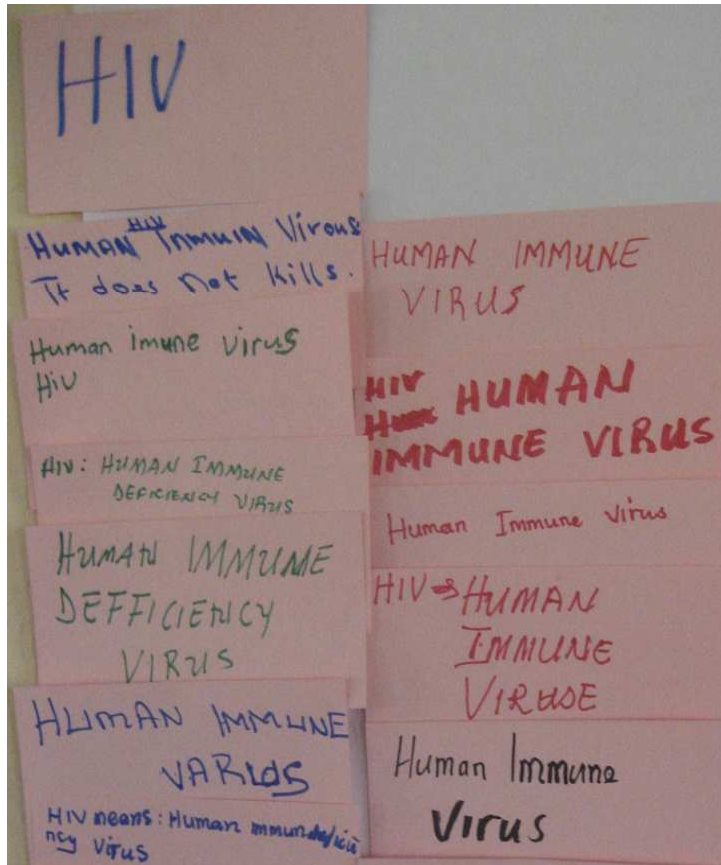 HIV
HIV
HUMAN INMUIN Virous
It does not kills.
Human imune virus
HiV
HIV: HUMAN IMMUNE
DEFICIENCY VIRUS
HUMAN IMMUME
DEFFICIENCY
VIRUS
HUMAN IMMUNE
VARIUS
HIV means: Human immundeficie
ncy Virus
HUMAN IMMUNE
VIRUS
HIV
HUMAN
IMMUNE VIRUS
Human Immune virus
HIV → HUMAN
IMMUNE
VIRUSE
Human Immune
Virus